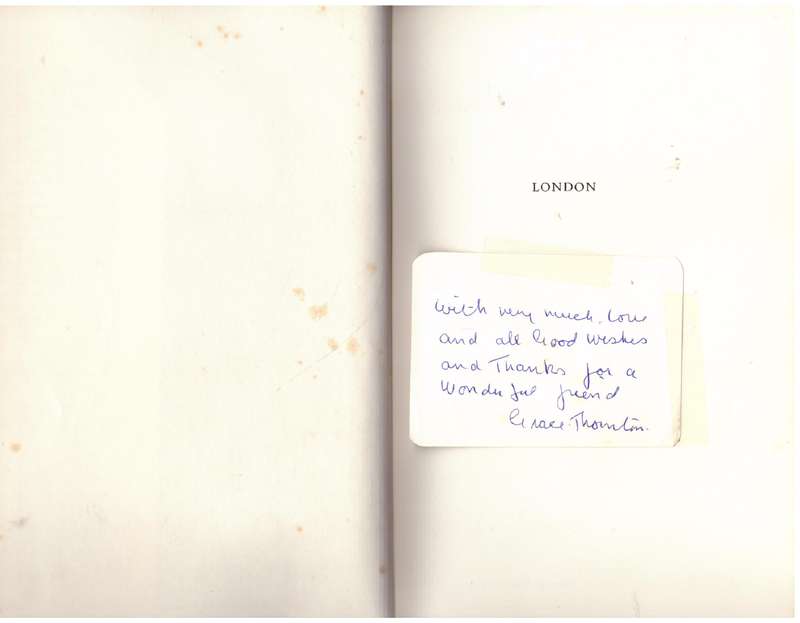 LONDON
With very much love
and all Good Wishes
and Thanks for a
Wonderful friend
Grace Thornton.